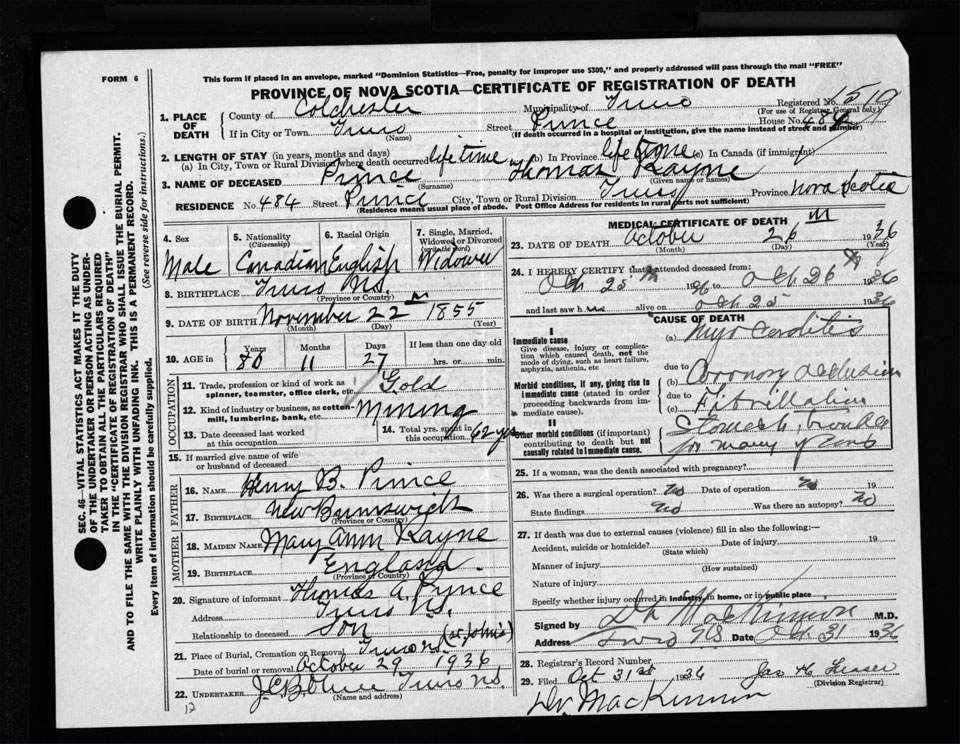 FORM 6
This form if placed in an envelope, marked "Dominion Statistics—Free, penalty for improper use $300," and properly addressed will pass through the mail "FREE"
PROVINCE OF NOVA SCOTIA—CERTIFICATE OF REGISTRATION OF DEATH
1. PLACE OF DEATH
County of Colchester Municipality of Truro Registered No.
(For use of Registrar General only)
If in City or Town Truro Street Prince House No. 484
(Name) (If death occurred in a hospital or institution, give the name instead of street and number)
2. LENGTH OF STAY (in years, months and days)
(a) In City, Town or Rural Division where death occurred lifetime (b) In Province lifetime (c) In Canada (if immigrant)
3. NAME OF DECEASED Prince Thomas Kayne
(Surname) (Given name or names)
RESIDENCE No. 484 Street Prince City, Town or Rural Division Truro Province Nova Scotia
(Residence means usual place of abode. Post Office Address for residents in rural parts not sufficient)
4. Sex Male
5. Nationality (Citizenship) Canadian
6. Racial Origin English
7. Single, Married, Widowed or Divorced (write the word) Widower
8. BIRTHPLACE Truro N.S.
(Province or Country)
9. DATE OF BIRTH November 22 1855
(Month) (Day) (Year)
10. AGE in Years 80 Months 11 Days 27 If less than one day old hrs. or min.
OCCUPATION
11. Trade, profession or kind of work as spinner, teamster, office clerk, etc. Gold
12. Kind of industry or business, as cotton-mill, lumbering, bank, etc. Mining
13. Date deceased last worked at this occupation
14. Total yrs. spent in this occupation 62 yrs
15. If married give name of wife or husband of deceased
FATHER
16. NAME Henry B. Prince
17. BIRTHPLACE New Brunswick
(Province or Country)
MOTHER
18. MAIDEN NAME Mary Ann Kayne
19. BIRTHPLACE England
(Province or Country)
20. Signature of informant Thomas A. Prince
Address Truro N.S.
Relationship to deceased Son
21. Place of Burial, Cremation or Removal Truro N.S. (St. John's)
Date of burial or removal October 29 1936
22. UNDERTAKER Truro N.S.
(Name and address)
12
MEDICAL CERTIFICATE OF DEATH
23. DATE OF DEATH October 26 1936
(Month) (Day) (Year)
24. I HEREBY CERTIFY that I attended deceased from
Oct 25th 1936 to Oct 26 1936
and last saw h im alive on Oct 25 1936
CAUSE OF DEATH
I
Immediate cause
Give disease, injury or complication which caused death, not the mode of dying, such as heart failure, asphyxia, asthenia, etc
(a) Myocarditis
due to
Morbid conditions, if any, giving rise to immediate cause (stated in order proceeding backwards from immediate cause).
(b) Coronary occlusion
due to
(c) Fibrillation
II
Other morbid conditions (if important) contributing to death but not causally related to immediate cause.
Stomach trouble
for many years
25. If a woman, was the death associated with pregnancy?
26. Was there a surgical operation? No Date of operation No 19
State findings No Was there an autopsy? No
27. If death was due to external causes (violence) fill in also the following:—
Accident, suicide or homicide? Date of injury 19
(State which)
Manner of injury
(How sustained)
Nature of injury
Specify whether injury occurred in industry, in home, or in public place
Signed by MacKinnon M.D.
Address Truro N.S. Date Oct. 31 1936
28. Registrar's Record Number
29. Filed Oct 31st 1936 Jas H Fraser
(Division Registrar)
Dr. MacKinnon
SEC. 46—VITAL STATISTICS ACT MAKES IT THE DUTY
OF THE UNDERTAKER OR PERSON ACTING AS UNDER-
TAKER TO OBTAIN ALL THE PARTICULARS REQUIRED
IN THE "CERTIFICATE OF REGISTRATION OF DEATH"
AND TO FILE THE SAME WITH THE DIVISION REGISTRAR WHO SHALL ISSUE THE BURIAL PERMIT.
WRITE PLAINLY WITH UNFADING INK. THIS IS A PERMANENT RECORD.
Every item of information should be carefully supplied. (See reverse side for instructions.)